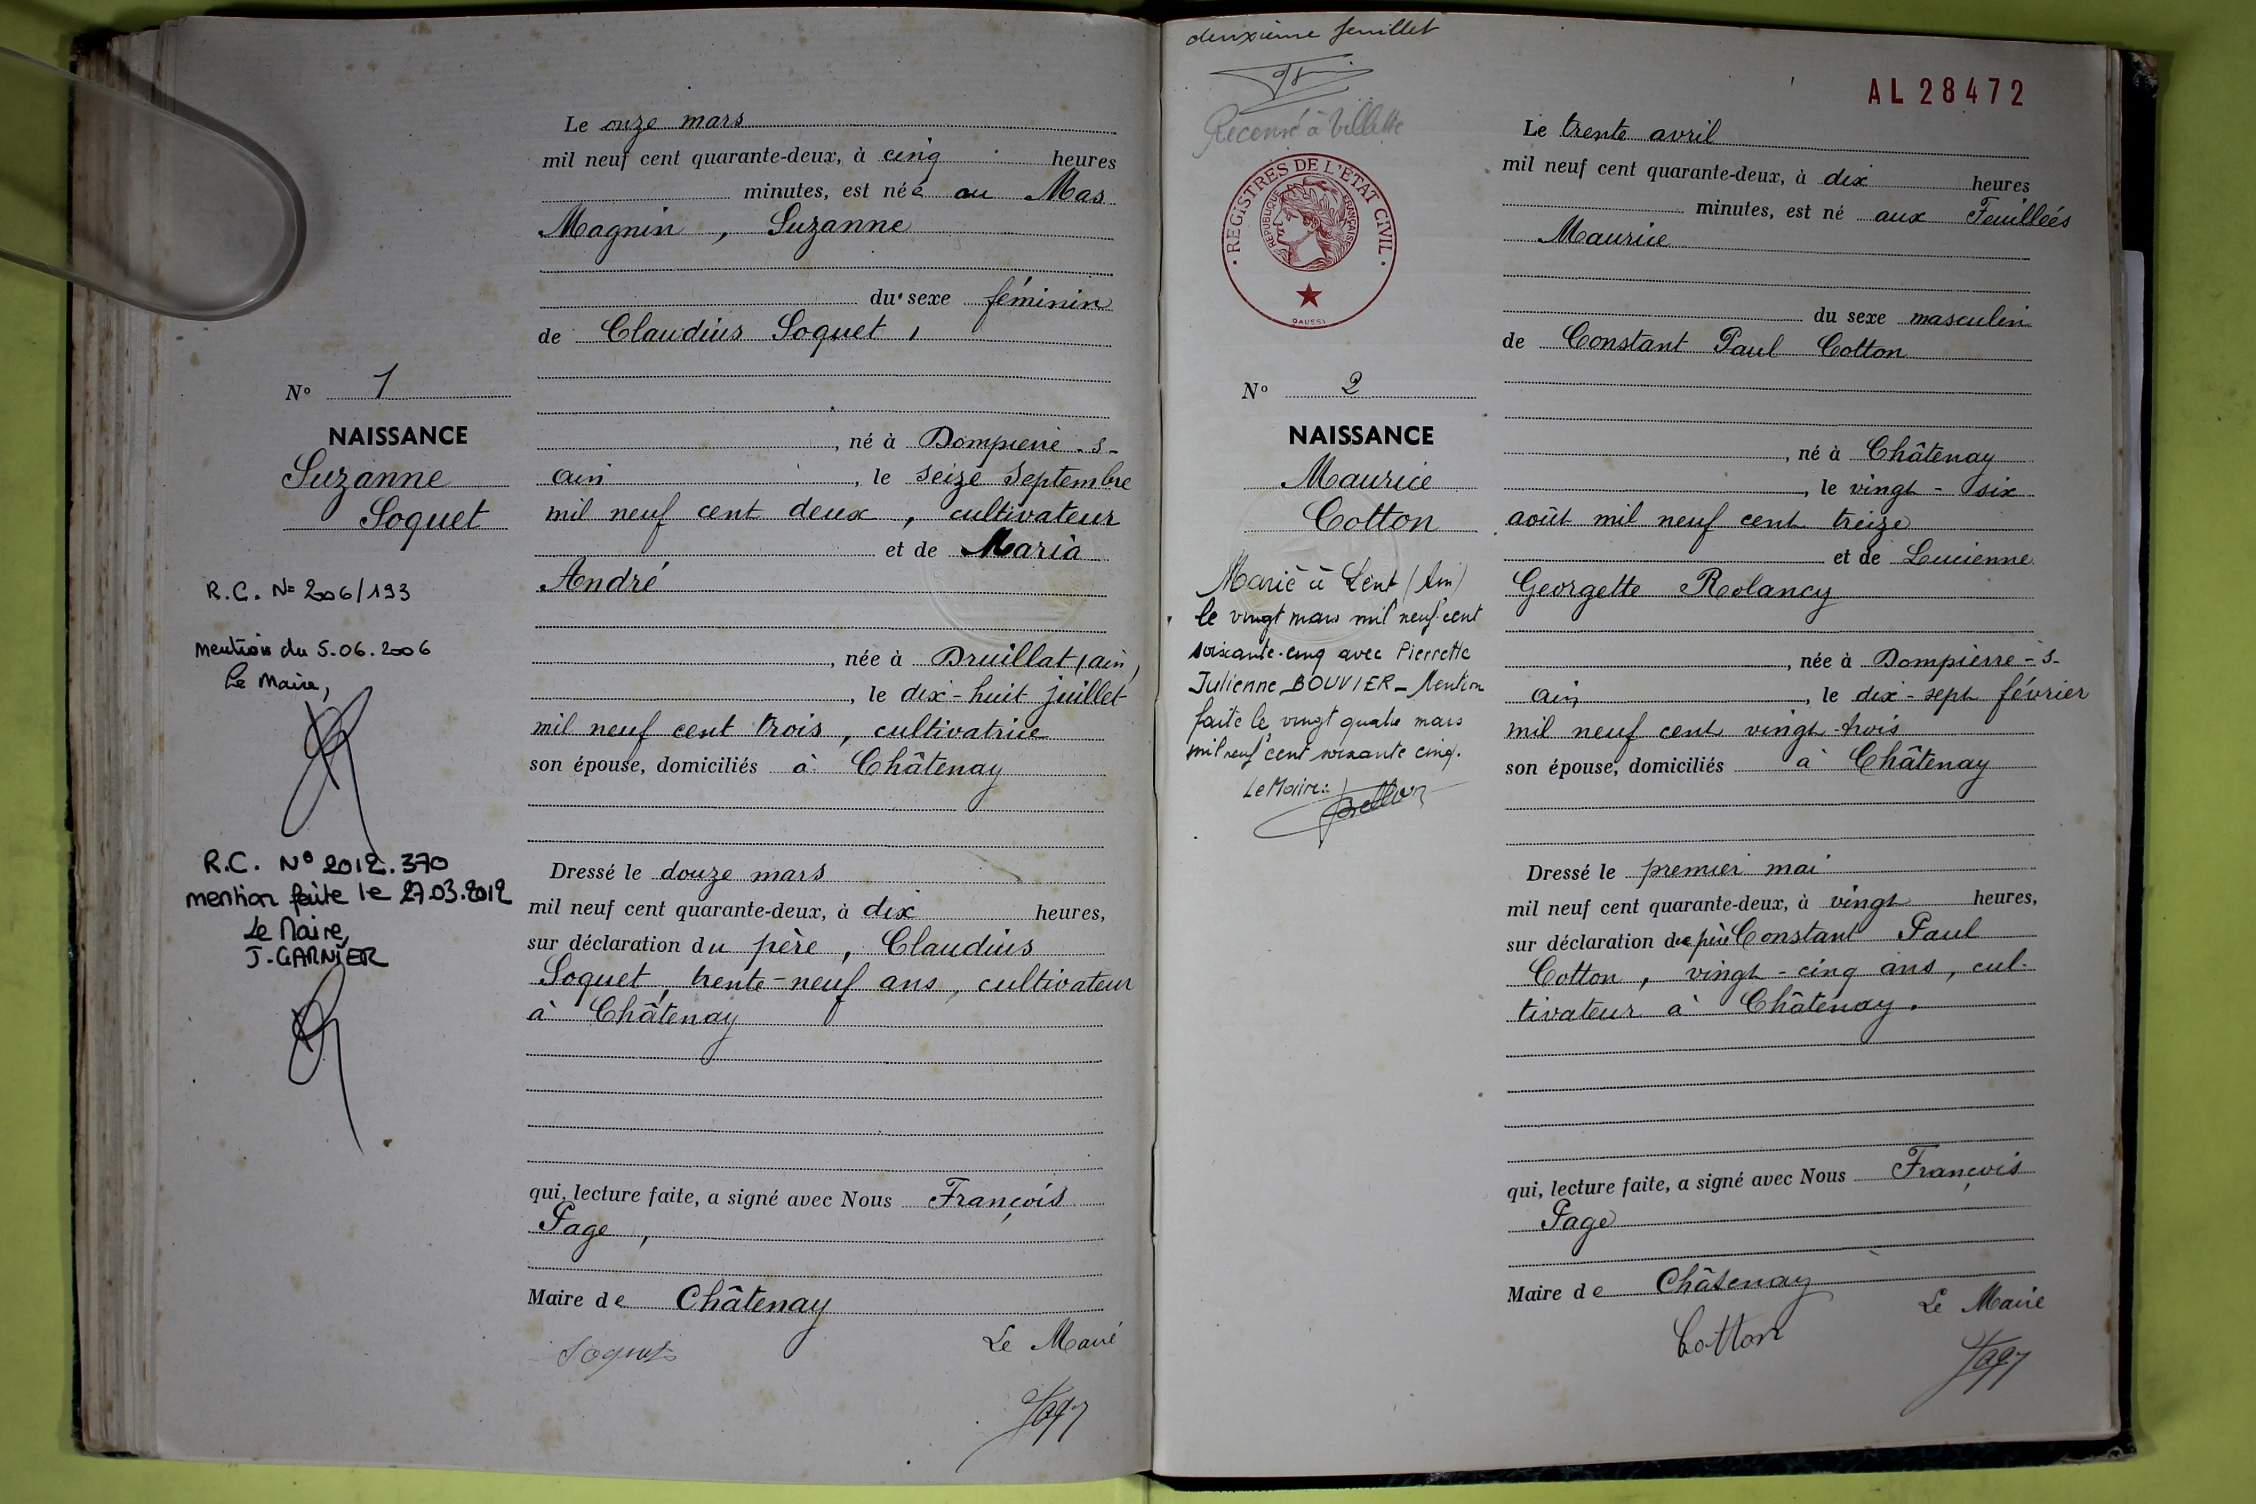 Le onze mars
mil neuf cent quarante-deux, à cinq heures
minutes, est née au Mas
Magnin, Suzanne
du sexe féminin
de Claudius Soquet,
N° 1
NAISSANCE
Suzanne
Soquet
, né à Dompierre-s-
ain, le seize septembre
mil neuf cent deux, cultivateur
et de Maria
André
, née à Druillat (ain)
, le dix-huit juillet
mil neuf cent trois, cultivatrice
son épouse, domiciliés à Châtenay
R.C. N= 2006/193
mention du 5.06.2006
Le Maire,
R.C. N° 2012.370
mention faite le 27.03.2012
Le Maire,
J. GARNIER
Dressé le douze mars
mil neuf cent quarante-deux, à dix heures,
sur déclaration du père, Claudius
Soquet, trente-neuf ans, cultivateur
à Châtenay
qui, lecture faite, a signé avec Nous François
Page,
Maire de Châtenay
Soquet
Le Maire
Page
deuxième feuillet
Recensé à Villette
REGISTRES DE L'ETAT CIVIL
REPUBLIQUE FRANÇAISE
AL 28472
Le trente avril
mil neuf cent quarante-deux, à dix heures
minutes, est né aux Feuillées
Maurice
du sexe masculin
de Constant Paul Cotton
N° 2
NAISSANCE
Maurice
Cotton
, né à Châtenay
, le vingt-six
août mil neuf cent treize
et de Lucienne
Georgette Rolancy
, née à Dompierre-s-
ain, le dix-sept février
mil neuf cent vingt-trois
son épouse, domiciliés à Châtenay
Marié à Lent (Ain)
le vingt mars mil neuf cent
soixante-cinq avec Pierrette
Julienne BOUVIER_ Mention
faite le vingt quatre mars
mil neuf cent soixante cinq.
Le Maire:
Dressé le premier mai
mil neuf cent quarante-deux, à vingt heures,
sur déclaration du père Constant Paul
Cotton, vingt-cinq ans, cul-
tivateur à Châtenay.
qui, lecture faite, a signé avec Nous François
Page
Maire de Châtenay
Cotton
Le Maire
Page